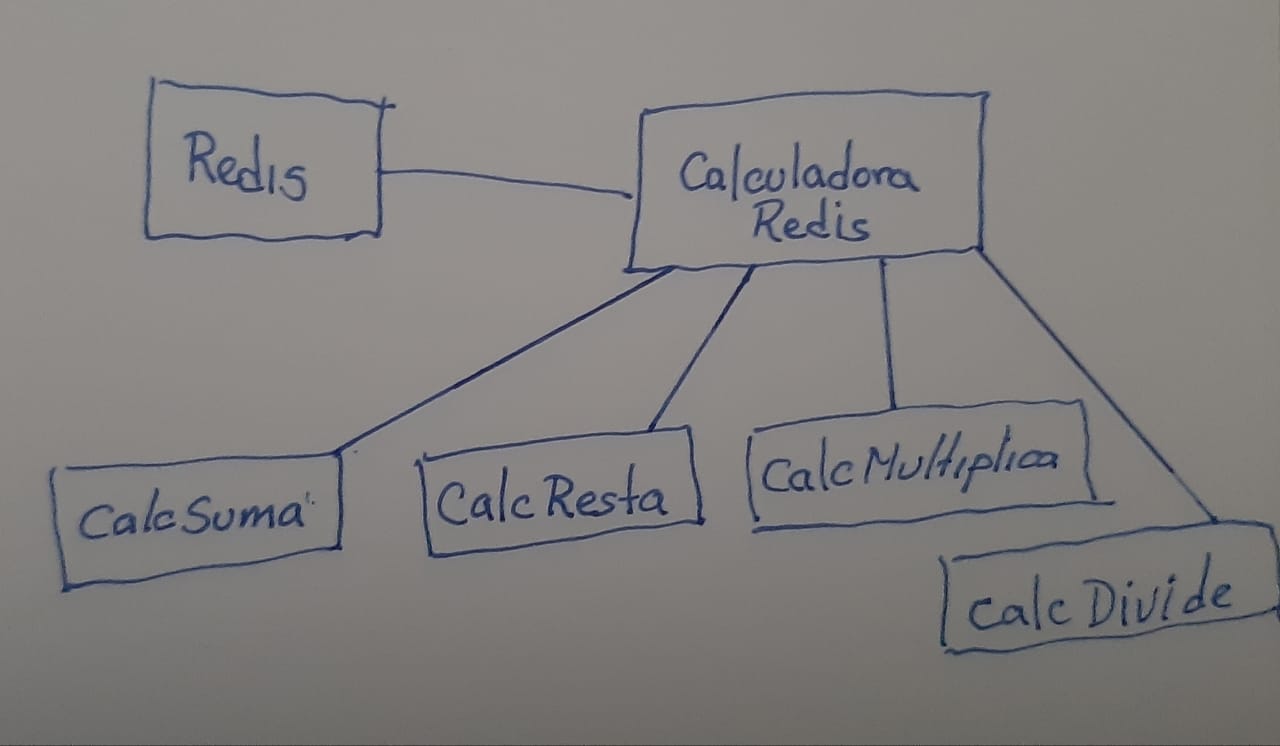 Redis
Calculadora
Redis
CalcSuma
CalcResta
CalcMultiplica
CalcDivide